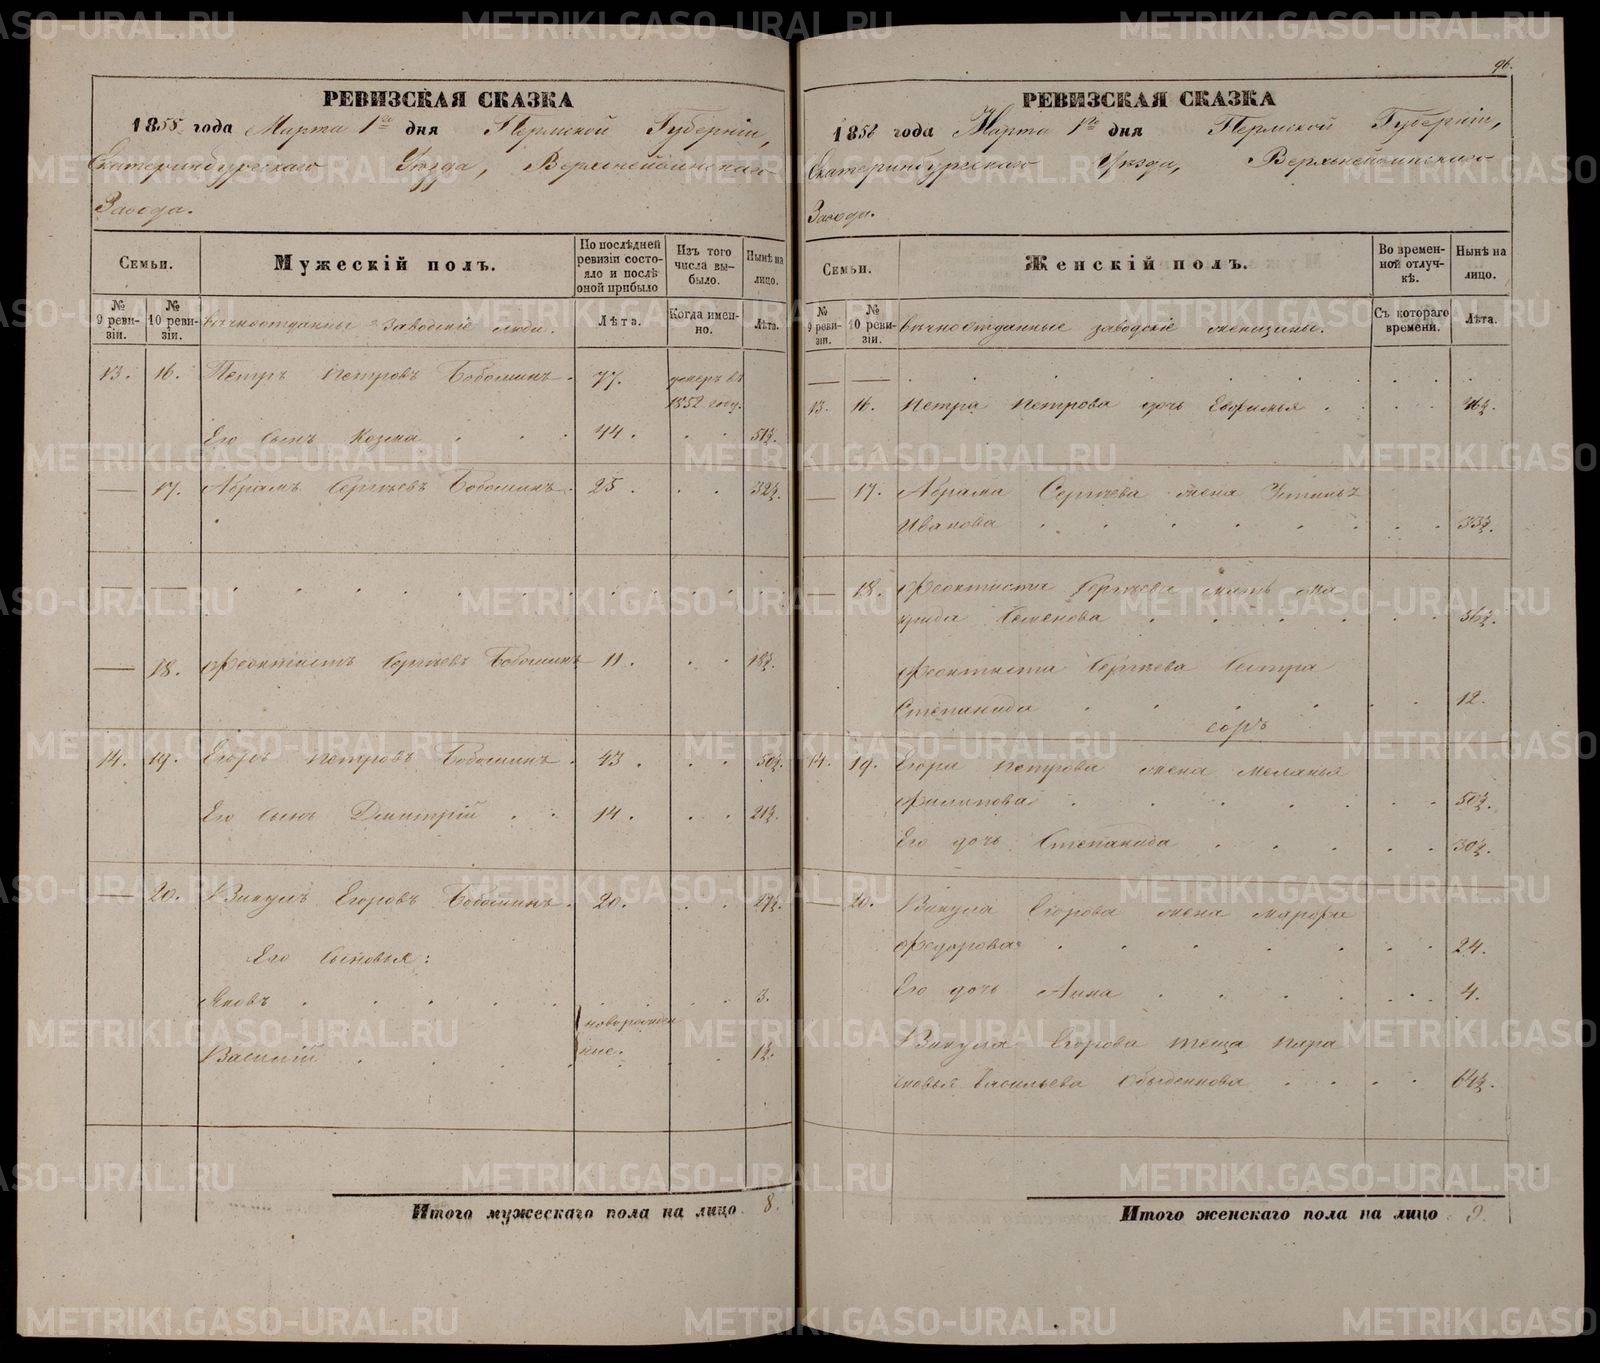 96.
РЕВИЗСКАЯ СКАЗКА
1858 года Марта 1го дня Пермской Губерніи,
Екатеринбургскаго Уѣзда, Верхнейвинскаго
Завода.
Семьи.
Мужескій полъ.
По послѣдней ревизіи состояло и послѣ оной прибыло
Изъ того числа выбыло.
Нынѣ на лицо.
№ 9 ревизіи.
№ 10 ревизіи.
вѣчноотданные заводскіе люди.
Лѣта.
Когда именно.
Лѣта.
13. 16. Петръ Петровъ Бабошинъ. 77. умеръ въ
1852 году.
Его сынъ Козма 44. 51½.
17. Абрамъ Сергѣевъ Бабошинъ. 25. 32½.
18. Феоктистъ Сергѣевъ Бабошинъ 11. 18½.
14. 19. Егоръ Петровъ Бабошинъ. 43. 50½.
Его сынъ Дмитрій 14. 21½.
20. Викулъ Егоровъ Бабошинъ. 20. 27½.
Его сыновья:
Яковъ 3.
новорожден
Василій ные. 1½.
Итого мужескаго пола на лицо 8.
РЕВИЗСКАЯ СКАЗКА
1858 года Марта 1го дня Пермской Губерніи,
Екатеринбургскаго Уѣзда, Верхнейвинскаго
Завода.
Семьи.
Женскій полъ.
Во временной отлучкѣ.
Нынѣ на лицо.
№ 9 ревизіи.
№ 10 ревизіи.
вѣчноотданные заводскіе женщины.
Съ котораго времени.
Лѣта.
13. 16. Петра Петрова дочь Евфимья 46½.
17. Абрама Сергѣева жена Устинья
Иванова 33½.
18. Феоктиста Сергѣева мать
Семенова 56½.
Феоктиста Сергѣева сестра
Степанида 12.
14. 19. Егора Петрова жена Меланья
Филипова 50½.
Его дочь Степанида 30½.
20. Викула Егорова жена Марфа
Федорова 24.
Его дочь Анна 4.
Викула Егорова теща Пара
сковья Васильева 64½.
Итого женскаго пола на лицо 9.
METRIKI.GASO-URAL.RU